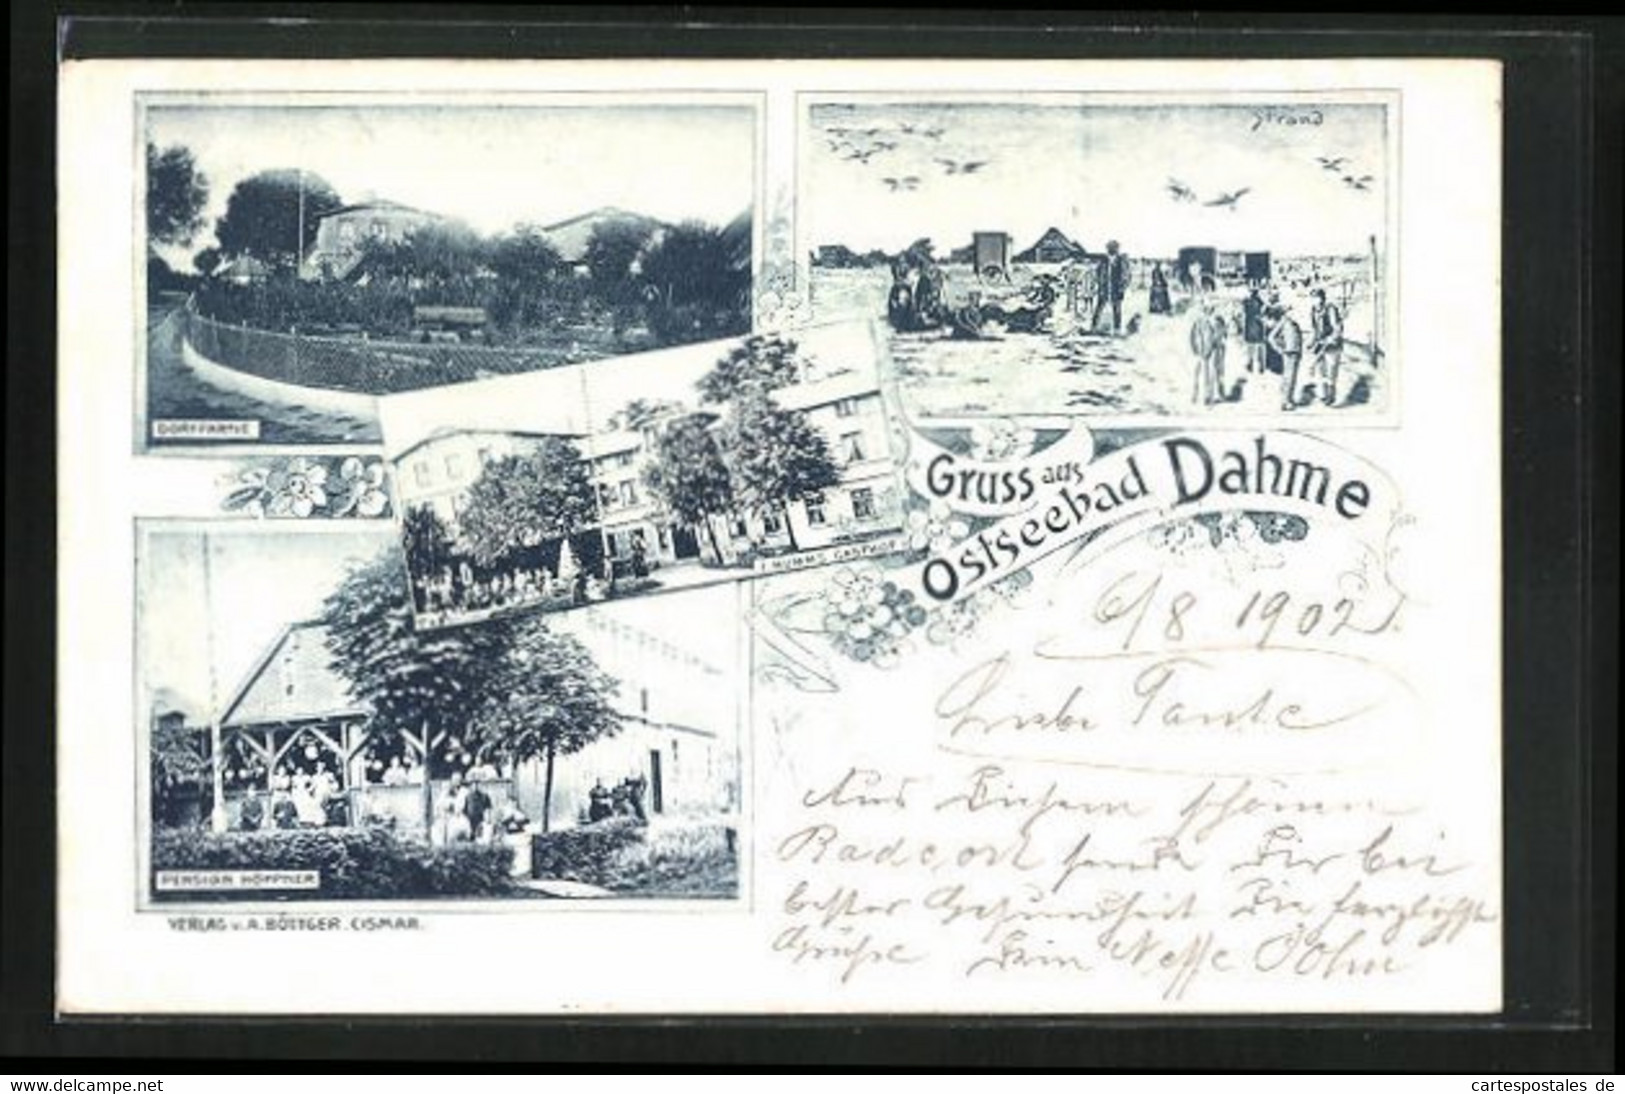 Strand
DORFPARTIE
F. HUMMS GASTHOF
Gruss aus
Ostseebad Dahme
PENSION HÖPPNER
VERLAG v. A. BÖTTGER. CISMAR.
6/8 1902.
Liebe Tante
Aus diesem schönen
Badeort sende Dir bei
bester Gesundheit die herzlichste
Grüße Dein Neffe
www.delcampe.net
cartespostales de